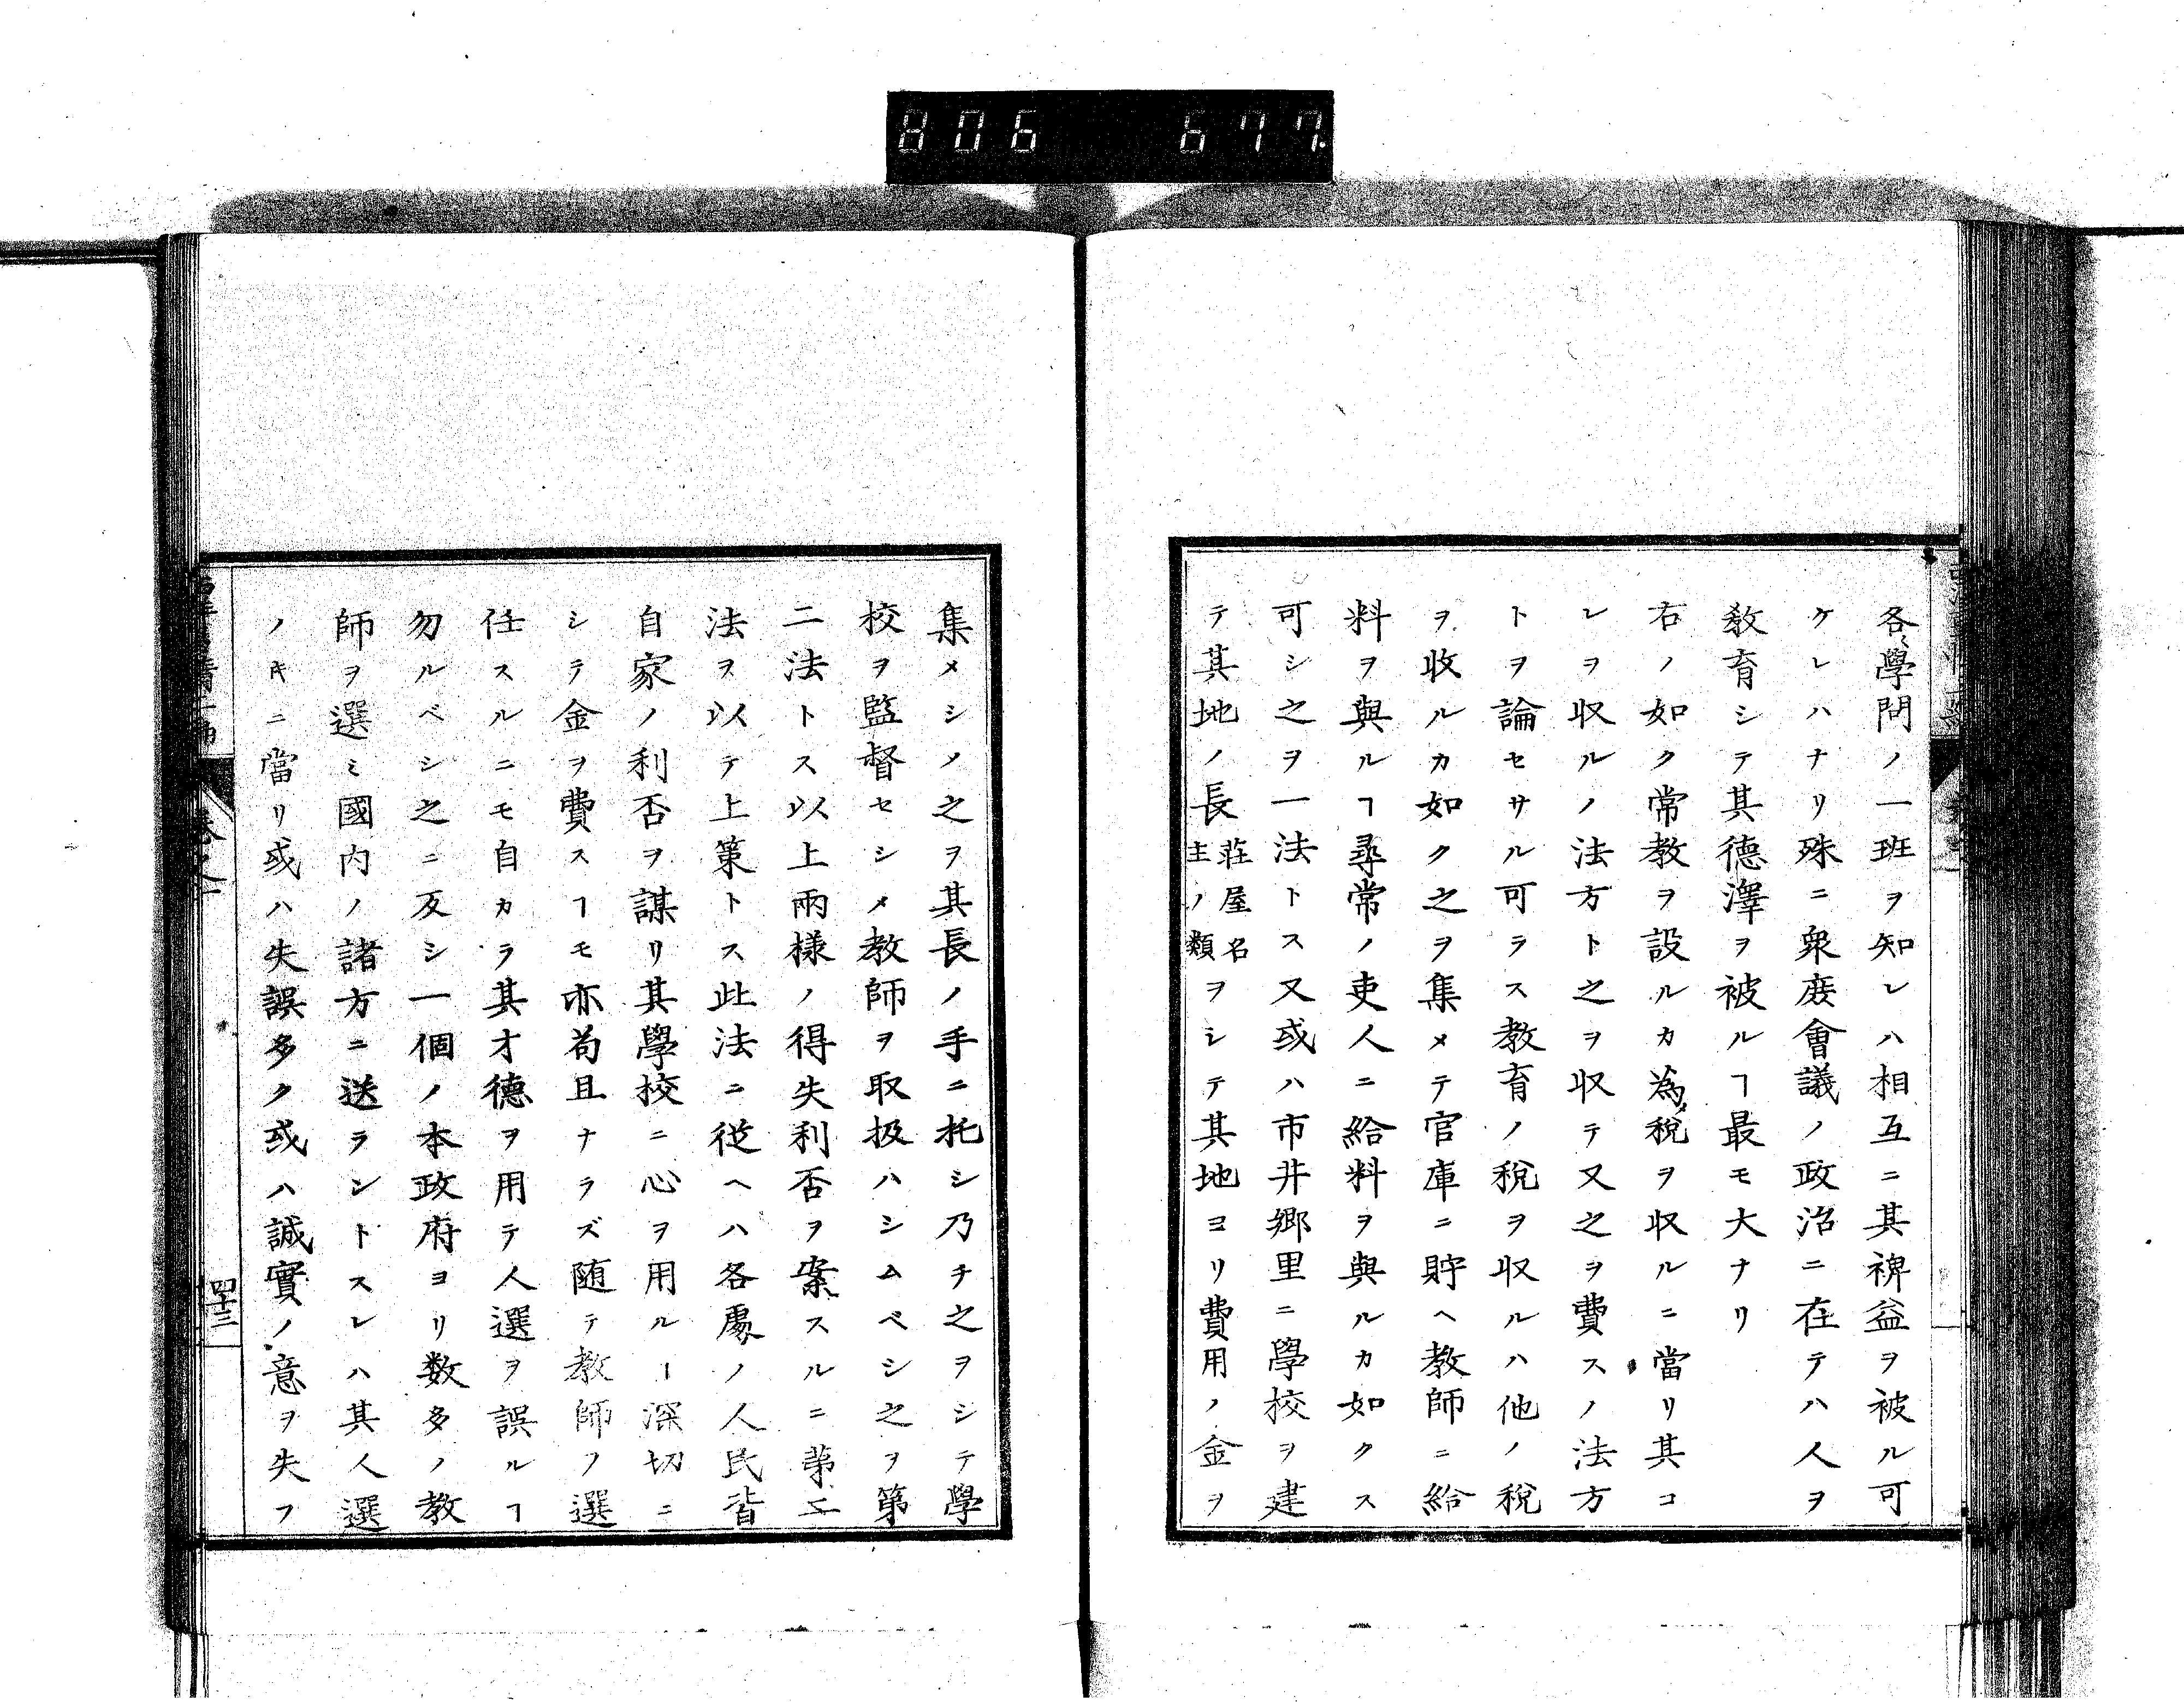 806 677
各〻學問ノ一班ヲ知レハ相互ニ其裨益ヲ被ル可
ケレハナリ殊ニ衆庻會議ノ政治ニ在テハ人ヲ
敎育シテ其德澤ヲ被ルヿ最モ大ナリ
右ノ如ク常教ヲ設ルカ為〆稅ヲ収ルニ當リ其コ
レヲ収ルノ法方ト之ヲ収テ又之ヲ費スノ法方
トヲ論セサル可ラス教育ノ稅ヲ収ルハ他ノ稅
ヲ收ルカ如ク之ヲ集メテ官庫ニ貯ヘ教師ニ給
料ヲ與ルヿ尋常ノ吏人ニ給料ヲ與ルカ如クス
可シ之ヲ一法トス又或ハ市井郷里ニ學校ヲ建
テ其地ノ長莊屋名主ノ類ヲシテ其地ヨリ費用ノ金ヲ
集メシノ之ヲ其長ノ手ニ托シ乃チ之ヲシテ學
校ヲ監督セシメ教師ヲ取扱ハシムベシ之ヲ第
二法トス以上兩樣ノ得失利否ヲ案スルニ苐二
法ヲ以テ上策トス此法ニ従ヘハ各處ノ人民皆
自家ノ利否ヲ謀リ其學校ニ心ヲ用ルー深切ニ
シテ金ヲ費スヿモ亦苟且ナラズ随テ教師ノ選
任スルニモ自カラ其才德ヲ用テ人選ヲ誤ルヿ
勿ルベシ之ニ反シ一個ノ本政府ヨリ数多ノ教
師ヲ選ミ國内ノ諸方ニ送ラントスレハ其人選
ノキニ當リ或ハ失誤多ク或ハ誠實ノ意ヲ失フ
卷之一
四十三